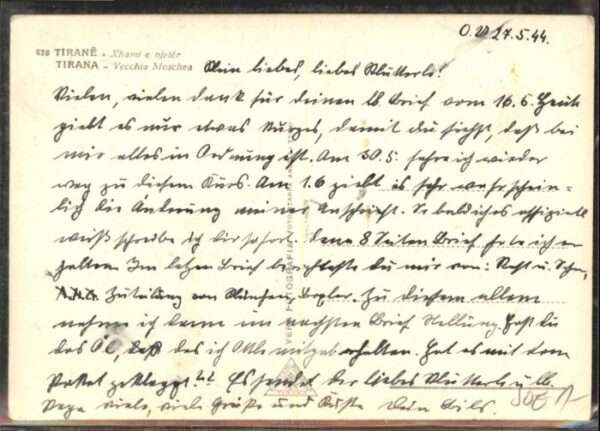 O.U. 27.5.44.
638 TIRANË - Xhami e vjetër
TIRANA - Vecchia Moschea
Mein liebes, liebes Mutterle!
Vielen, vielen Dank für deinen lb. Brief vom 16.5. Heute
gibt es nur etwas Kurzes, damit du siehst, daß bei
mir alles in Ordnung ist. Am 30.5. fahre ich wieder
weg zu diesem Kurs. Am 1.6 gibt es sehr wahrschein-
lich die Änderung meiner Anschrift. So bald ich es offiziell
weiß schreibe ich dir sofort. Denn 8 Seiten Brief habe ich er-
halten. Im letzten Brief du mir von:
Zuteilung von Zu diesem allem
nehme ich dann im nächsten Brief Stellung. Hast du
das daß das ich erhalten. Hat es mit dem
Paket geklappt? Es sendet der lieben Mutterle u. lb.
viele, viele Grüße und Küsse Dein
VERA FOTOGRAFIA